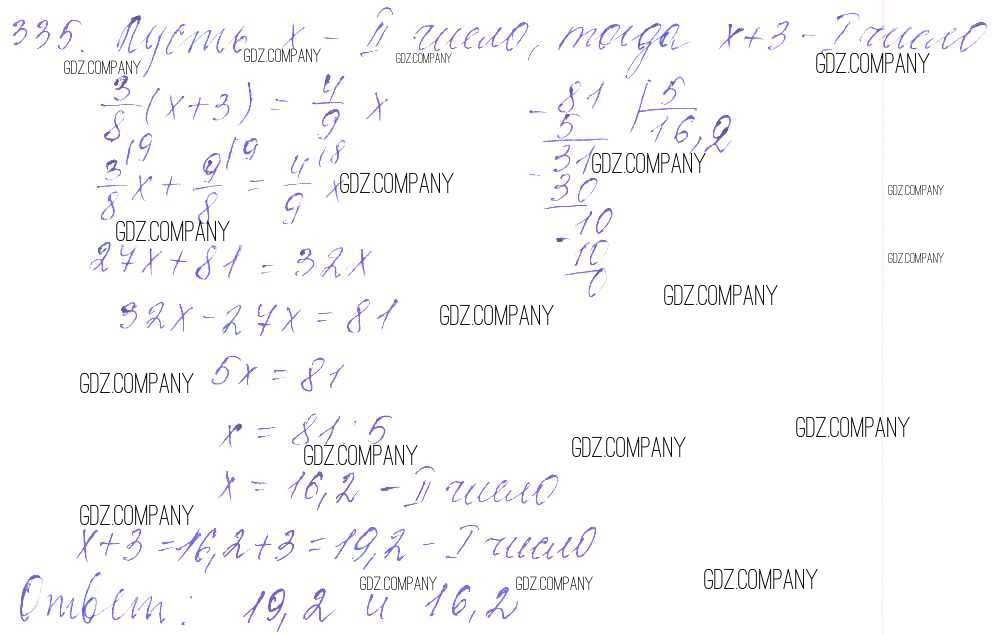 335. Пусть x - II число, тогда x+3 - I число
GDZ.COMPANY GDZ.COMPANY GDZ.COMPANY GDZ.COMPANY
3/8 (x+3) = 4/9 x
3/8 x + 9/8 = 4/9 x
|9 |9 |8
GDZ.COMPANY
GDZ.COMPANY
27x+81 = 32x
32x-27x = 81
GDZ.COMPANY
GDZ.COMPANY 5x = 81
x = 81:5
GDZ.COMPANY
x = 16,2 - II число
GDZ.COMPANY
x+3 =16,2+3 =19,2 - I число
GDZ.COMPANY GDZ.COMPANY GDZ.COMPANY
Ответ: 19,2 и 16,2
-81 | 5
5 16,2
31 GDZ.COMPANY
-30 GDZ.COMPANY
10
-10 GDZ.COMPANY
0
GDZ.COMPANY
GDZ.COMPANY
GDZ.COMPANY